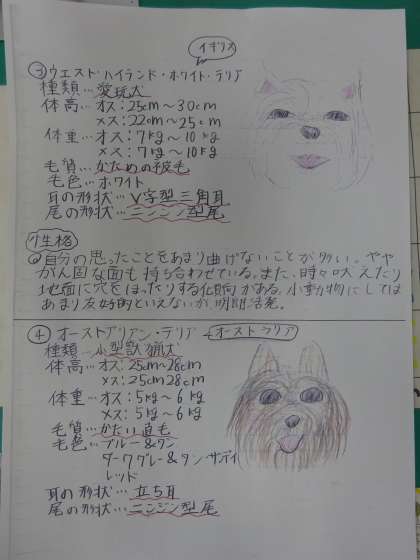 イギリス
③ウエスト・ハイランド・ホワイト・テリア
種類…愛玩犬
体高…オス：25cm～30cm
メス：22cm～25cm
体重…オス：7kg～10kg
メス：7kg～10kg
毛質…かための被毛
毛色…ホワイト
耳の形状…V字型三角耳
尾の形状…ニンジン型尾
性格
◎自分の思ったことをあまり曲げないことが多い。やや
がん固な面も持ち合わせている。また、時々吠えたり
地面に穴をほったりする傾向がある。小動物にしては
あまり友好的といえないが、明朗活発。
④オーストラリアン・テリア オーストラリア
種類…小型獣猟犬
体高…オス：25cm～28cm
メス：25cm28cm
体重…オス：5kg～6kg
メス：5kg～6kg
毛質…かたい直毛
毛色…ブルー&タン
ダークグレー&タン サンディ
レッド
耳の形状…立ち耳
尾の形状…ニンジン型尾